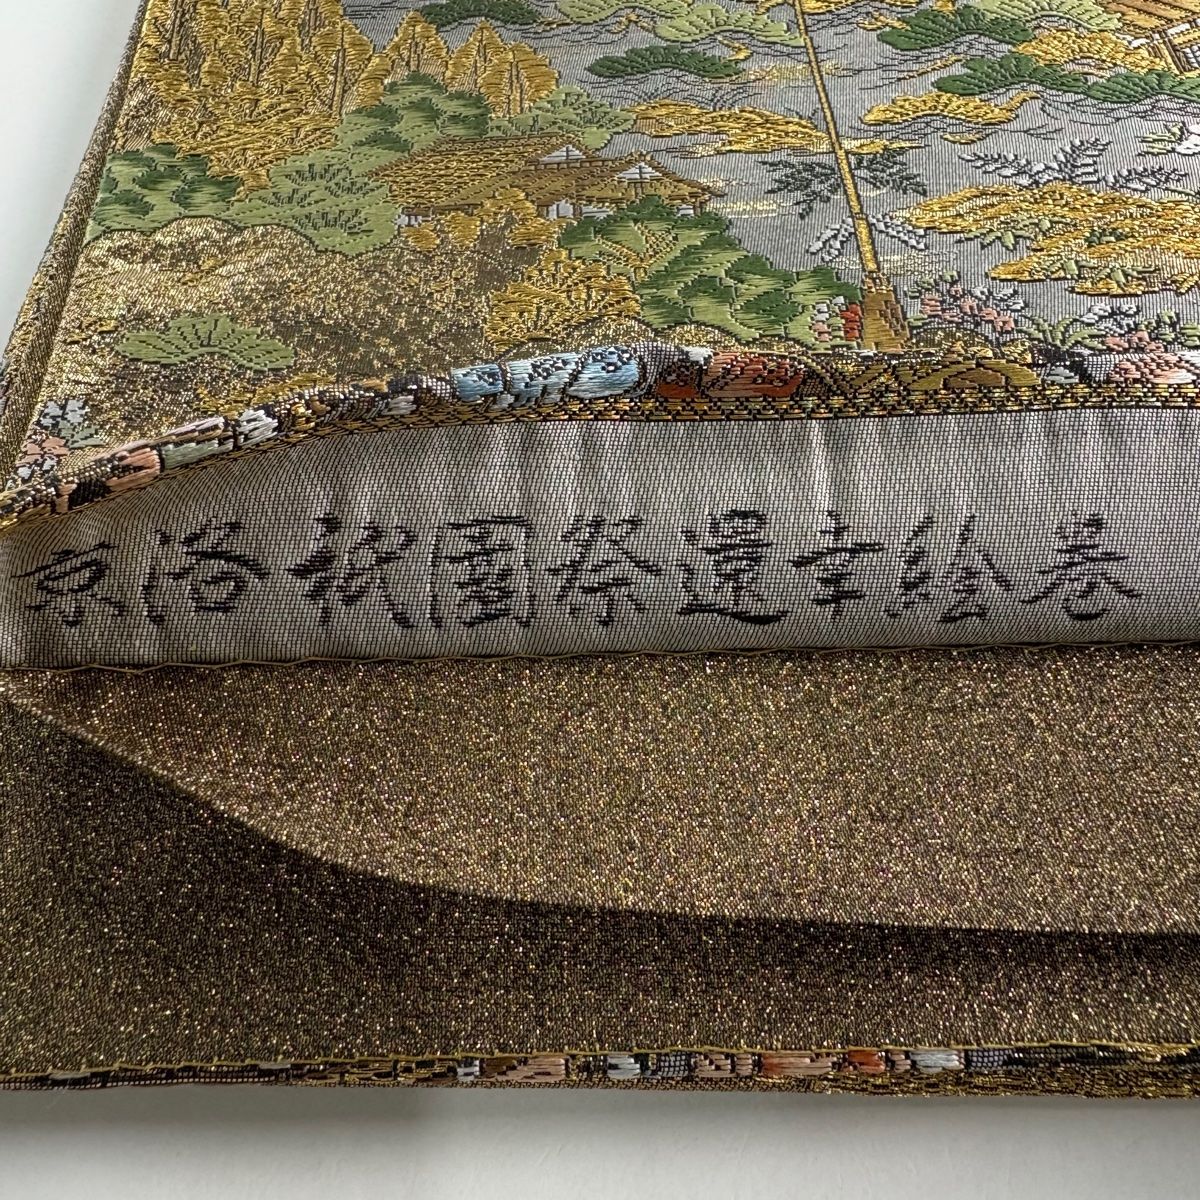 京洛祇園祭還幸絵巻